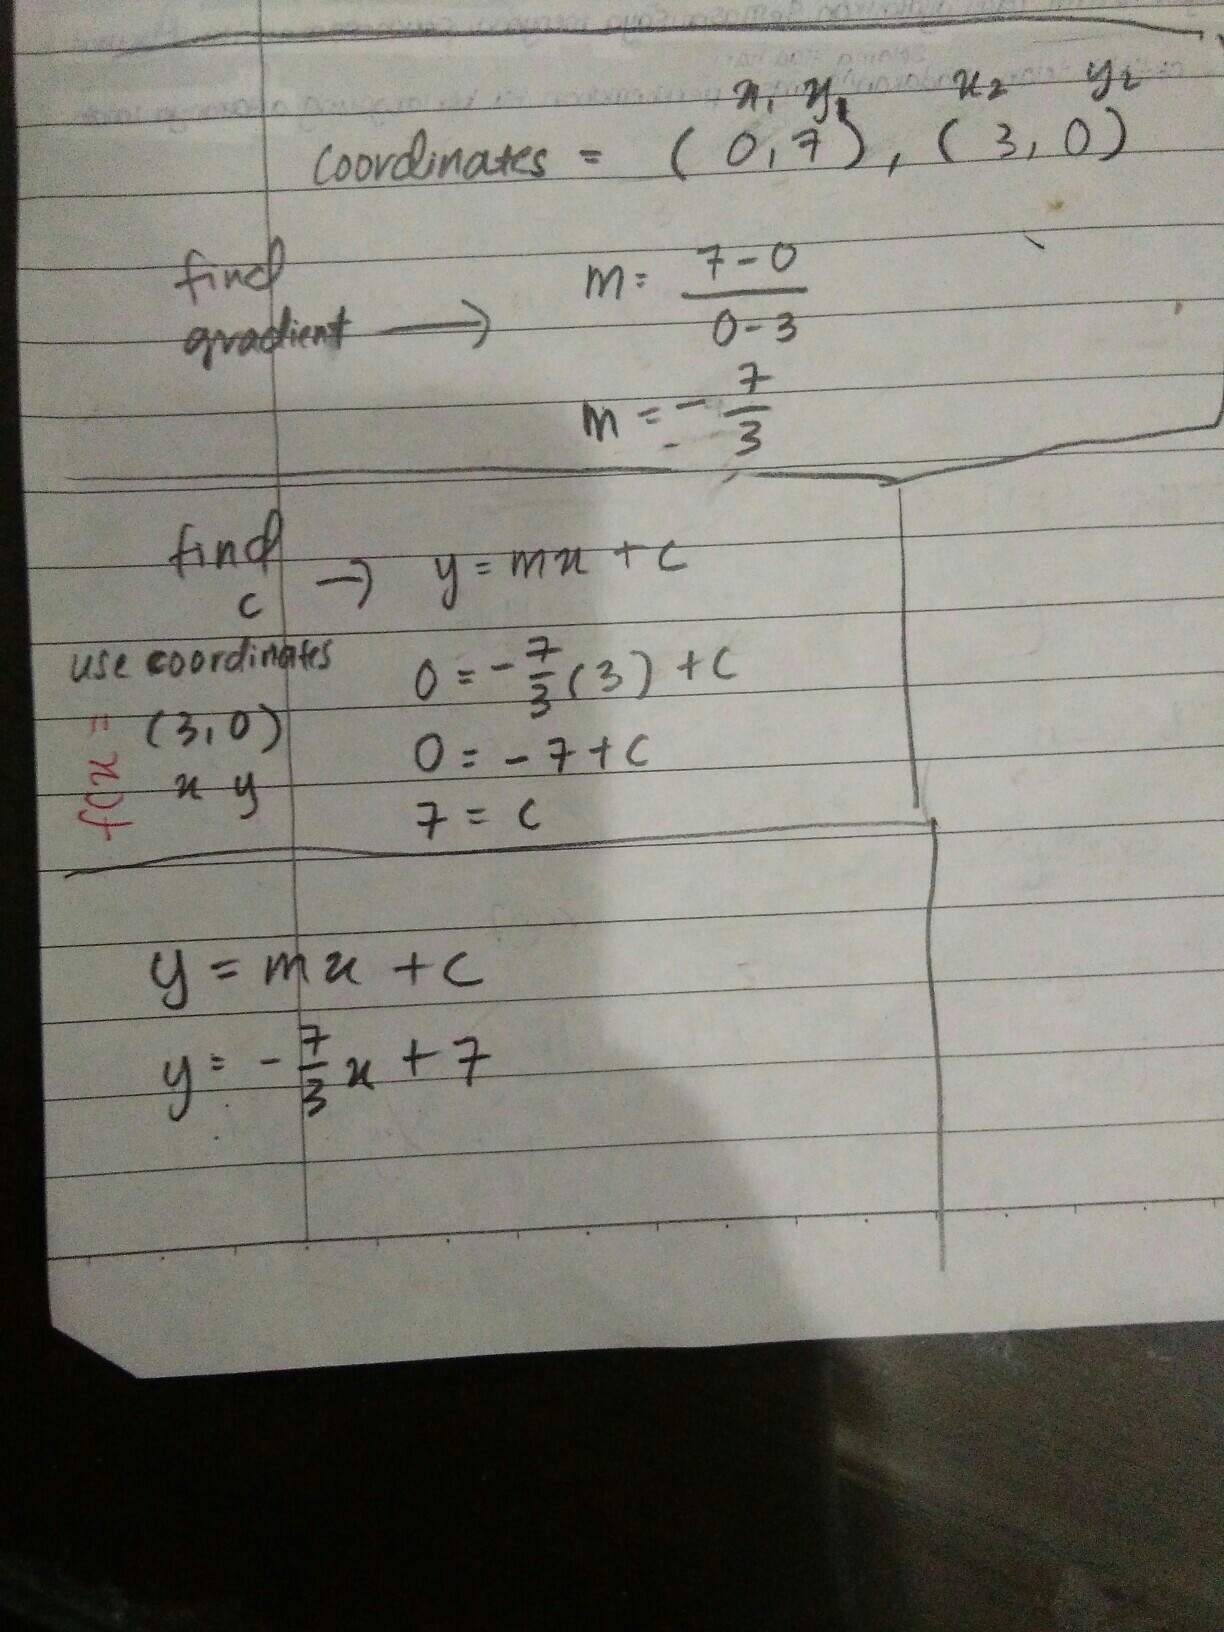 x₁ y₁ x₂ y₂
Coordinates = (0,7), (3,0)
find
gradient → m = 7-0 / 0-3
m = - 7/3
find
c → y = mx + c
use coordinates
(3,0)
x y
0 = - 7/3 (3) + c
0 = - 7 + c
7 = c
f(x =
y = mx + c
y = - 7/3 x + 7